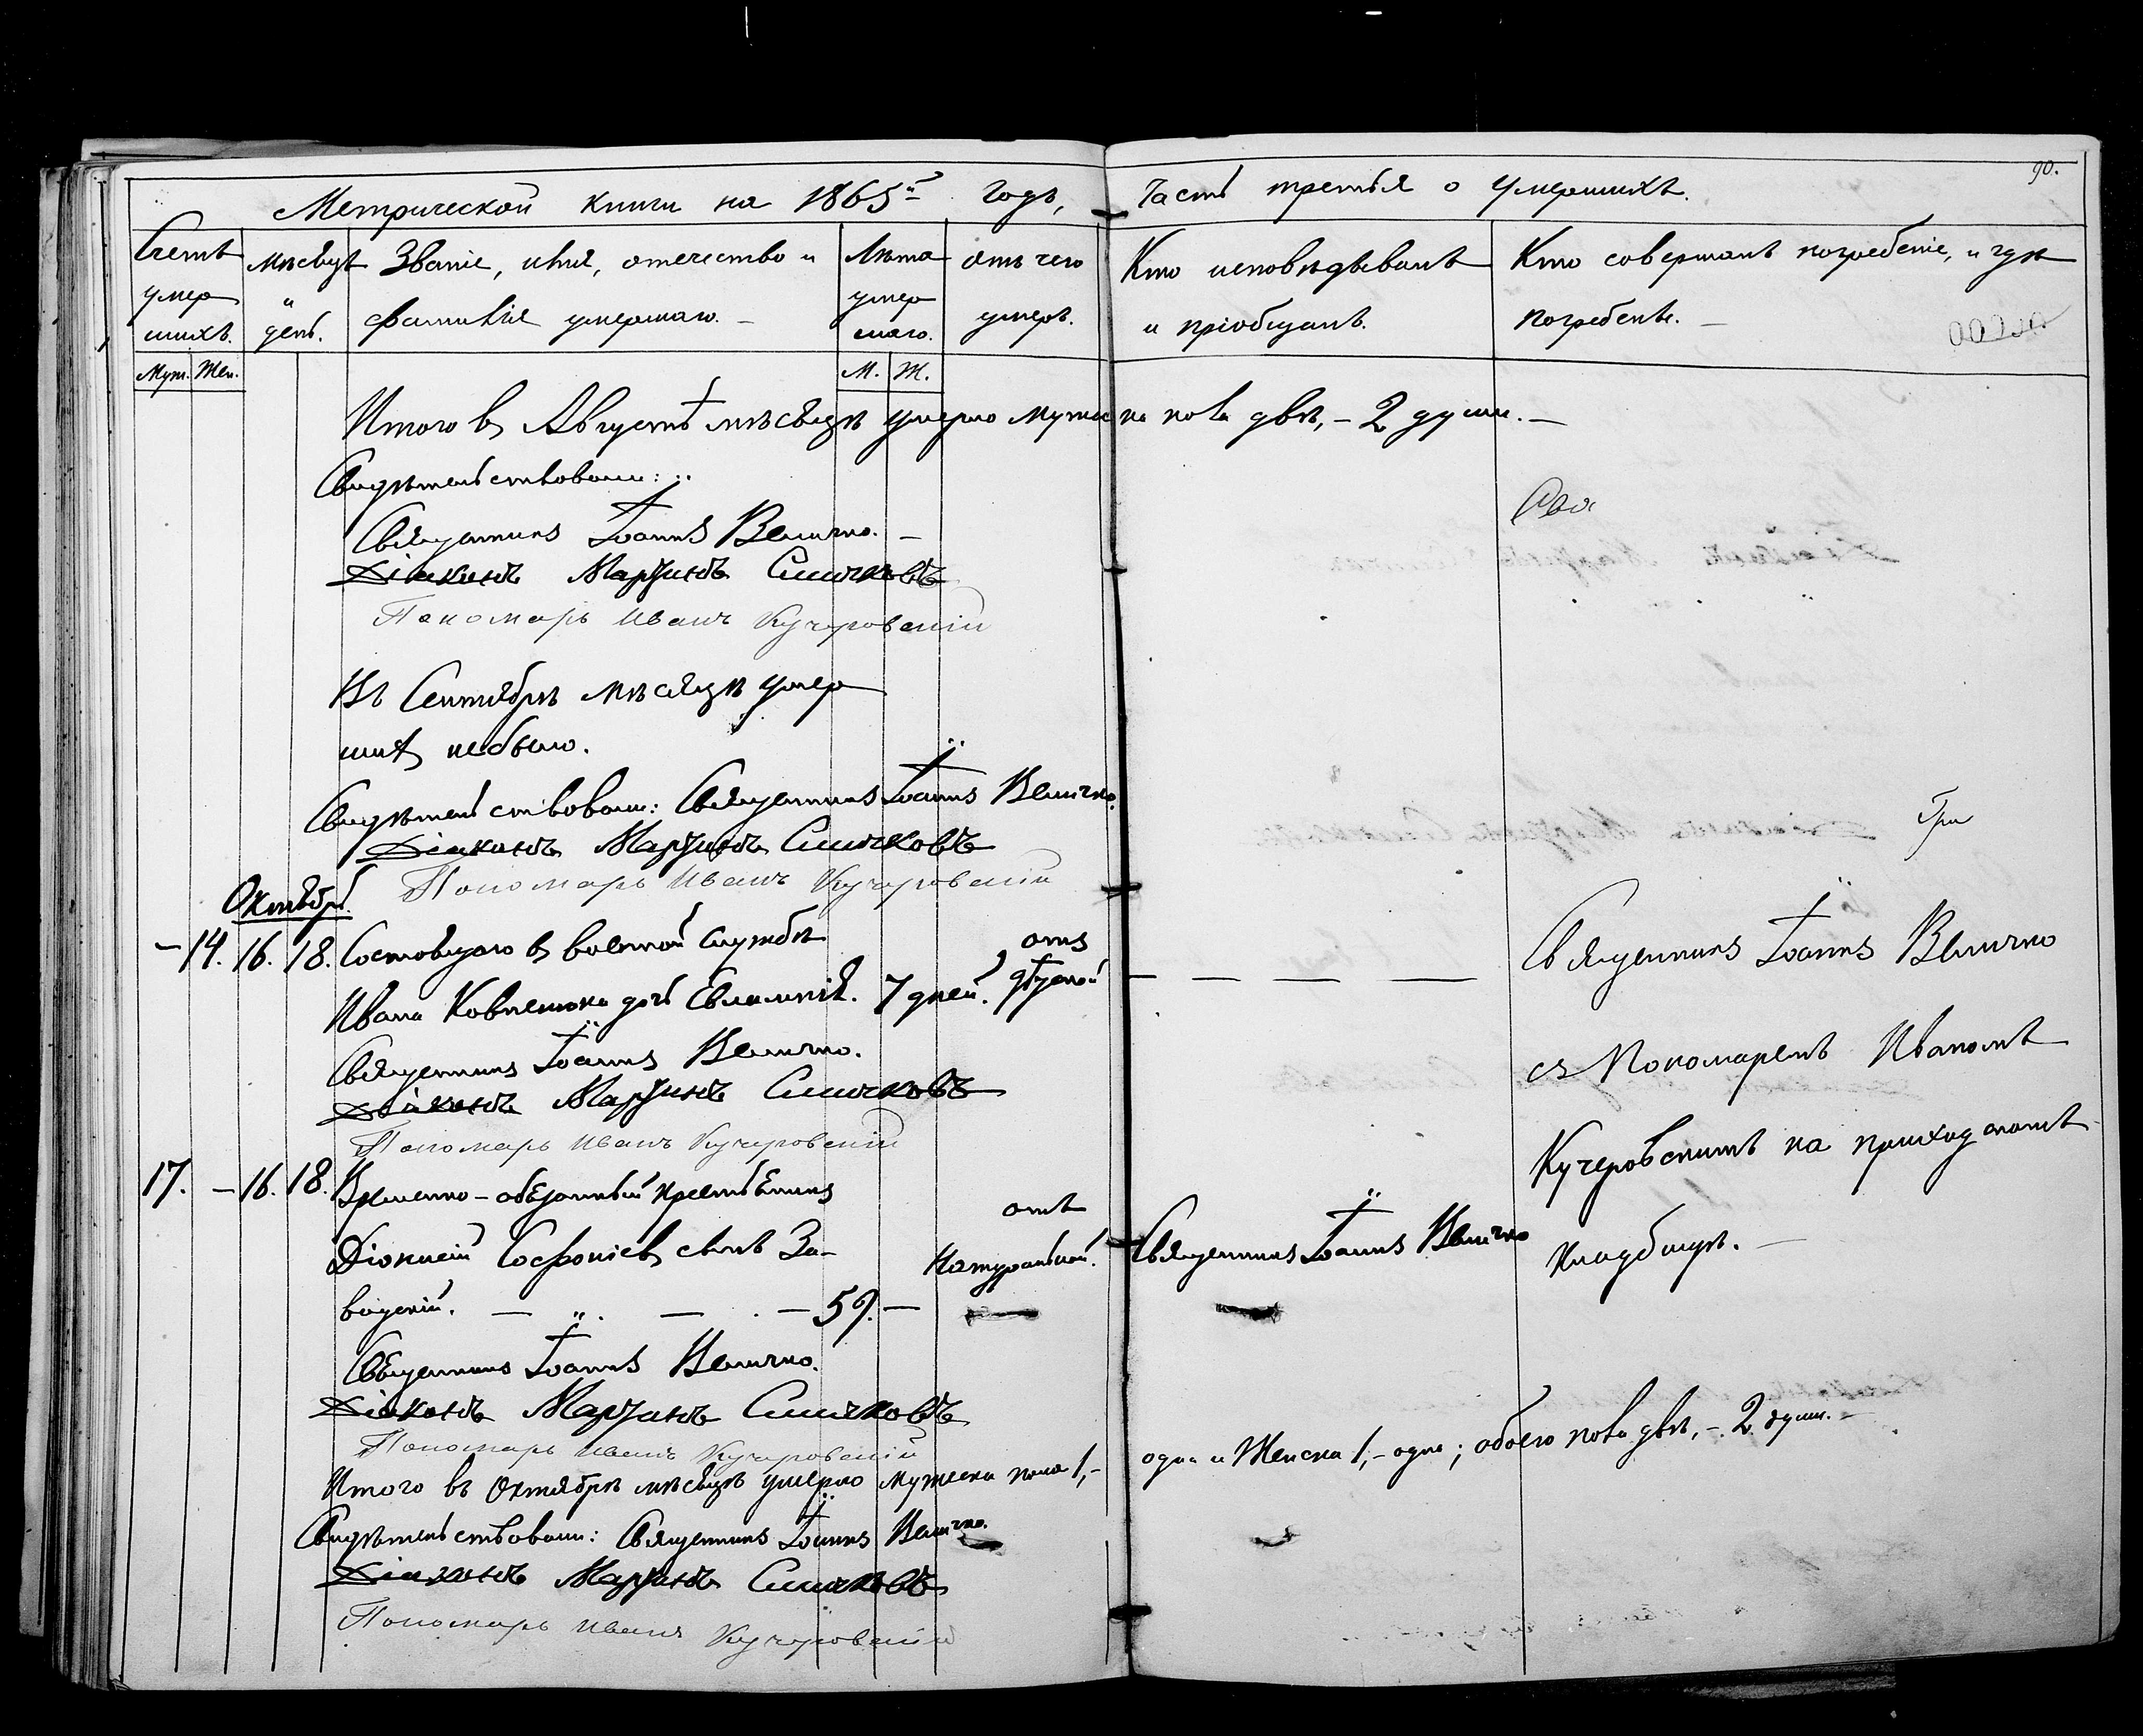 90.
Метрической книги на 1865й годъ, Часть третья о умершихъ.
Счетъ умер шихъ.
Муж. Жен.
мѣсяцъ и день.
Званіе, имя, отечество и
фамилія умершаго. —
Лѣта умер шаго.
М. Ж.
отъ чего умеръ.
Кто исповѣдывалъ
и пріобщалъ.
Кто совершалъ погребеніе, и гдѣ
погребенъ. —
Итого въ Августѣ мѣсяцѣ умерло мужеска пола двѣ, — 2 души. —
Свидѣтельствовали:
Священникъ Іоаннъ Величко. —
Діаконъ Мартинъ
Пономарь Иванъ Кучеровскій
Въ Сентябрѣ мѣсяцѣ умер
шихъ небыло.
Свидѣтельствовали: Священникъ Іоаннъ Величко.
Діаконъ Мартинъ
Три
Пономарь Иванъ Кучеровскій
Октябрь.
— 14. 16. 18. Состоящаго въ военной службѣ отъ
Ивана дочь Евлампія. 7 дней. — — — — Священникъ Іоаннъ Величко
Священникъ Іоаннъ Величко. съ Пономаремъ Иваномъ
Діаконъ Мартинъ
Пономарь Иванъ Кучеровскій Кучеровскимъ на приходскомъ
17. — 16. 18. Временно-обязанный крестьянинъ отъ
Діонисій Софроніевъ сынъ За- натуральной. Священникъ Іоаннъ Величко кладбищѣ. —
— — — 59. —
Священникъ Іоаннъ Величко.
Діаконъ Мартинъ
Пономарь Иванъ Кучеровскій
Итого въ Октябрѣ мѣсяцѣ умерло мужеска пола 1,- одна и Женска 1,- одна; обоего пола двѣ, - 2 души. —
Свидѣтельствовали: Священникъ Іоаннъ Величко.
Діаконъ Мартинъ
Пономарь Иванъ Кучеровскій